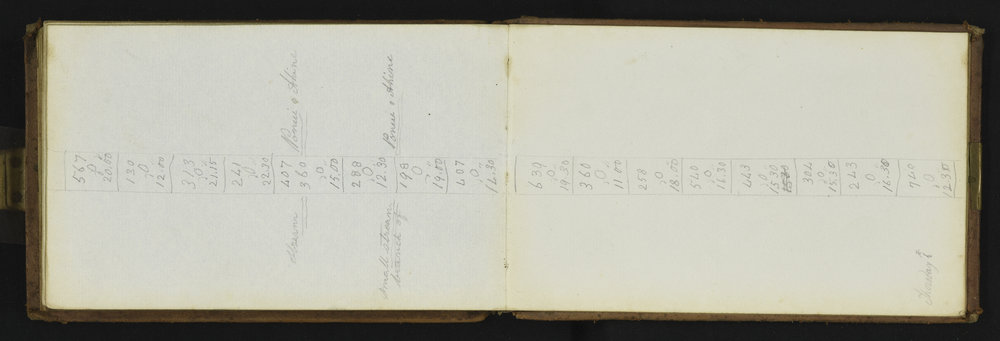 567
0
20.00
130
0
12.00
313
0
21.15
241
0
22.30
407 Ponui & Ahine
360
0
15.00
288
0
12.30 Ponui & Ahine
small stream 198
branch of 0
19.00
407
0
14.30
639
0
19.30
360
0
11.00
258
0
18.00
540
0
16.30
443
0
15.30
304
0
15.30
243
0
16.30
740
0
12.30